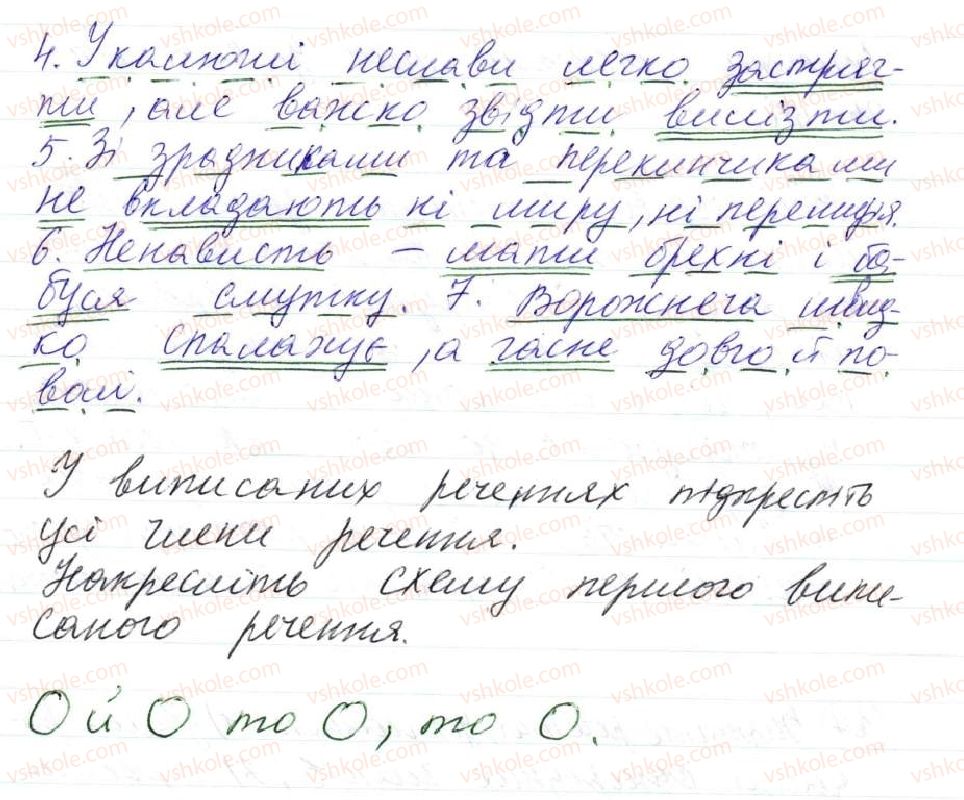 4. У калюжі неслави легко застряг-
ти, але важко звідти вилізти.
5. Зі зрадниками та перекинчиками
не вкладають ні миру, ні перемир'я.
6. Ненависть – мати брехні і ба-
буся смутку. 7. Ворожнеча швид-
ко спалахує, а гасне довго й по-
волі.
У виписаних реченнях підкресліть
усі члени речення.
Накресліть схему першого випи-
саного речення.
О й О то О, то О.